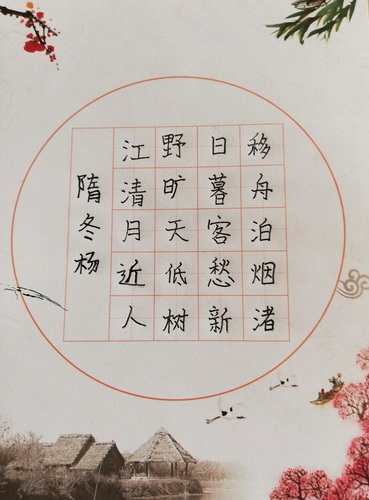 移舟泊烟渚
日暮客愁新
野旷天低树
江清月近人
隋冬杨